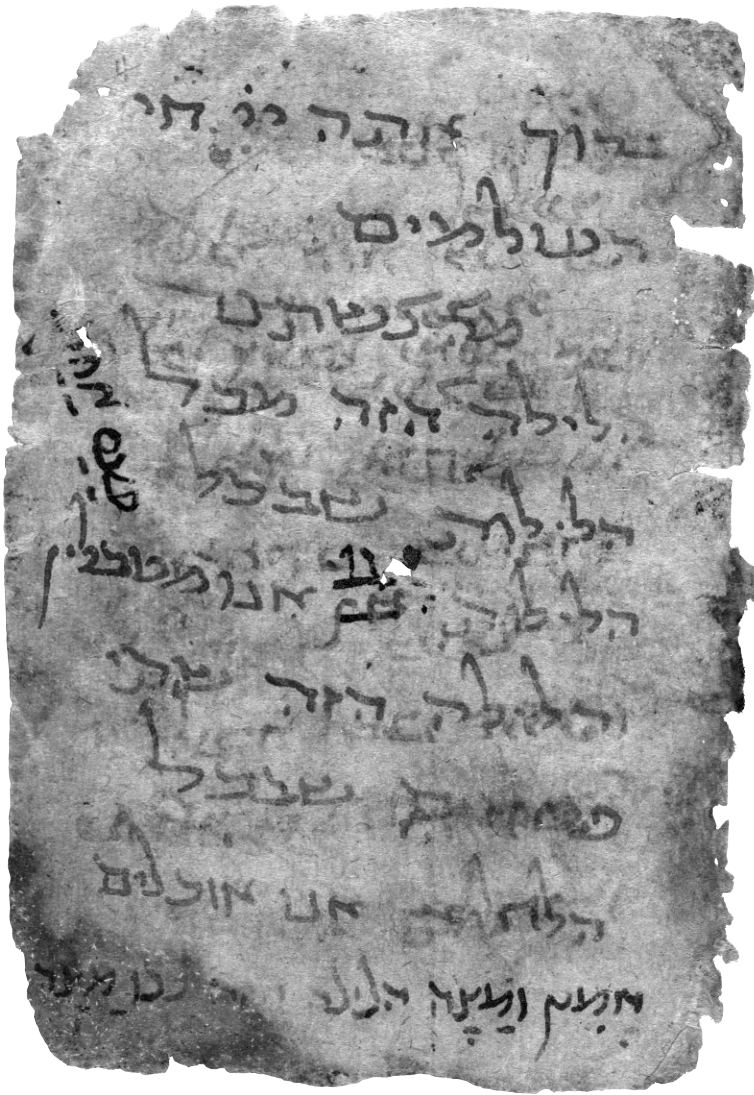 ברוך אתה ייי חי
העולמים
הלילה הזה מכל
הלילות שבכל
הלילות אין אנו מטבלין
והלילה הזה שתי
פעמים שבכל
הלילות אנו אוכלים
חָמֵץ וּמַצָה הלילה הזה כולו מַצָה